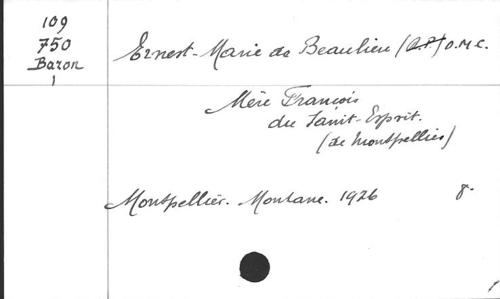 109
750
Baron
1
Ernest-Marie de Beaulieu (R.P.) O.M.C.
Mère François
du Saint-Esprit.
(de Montpellier)
Montpellier. Montane. 1926 8°